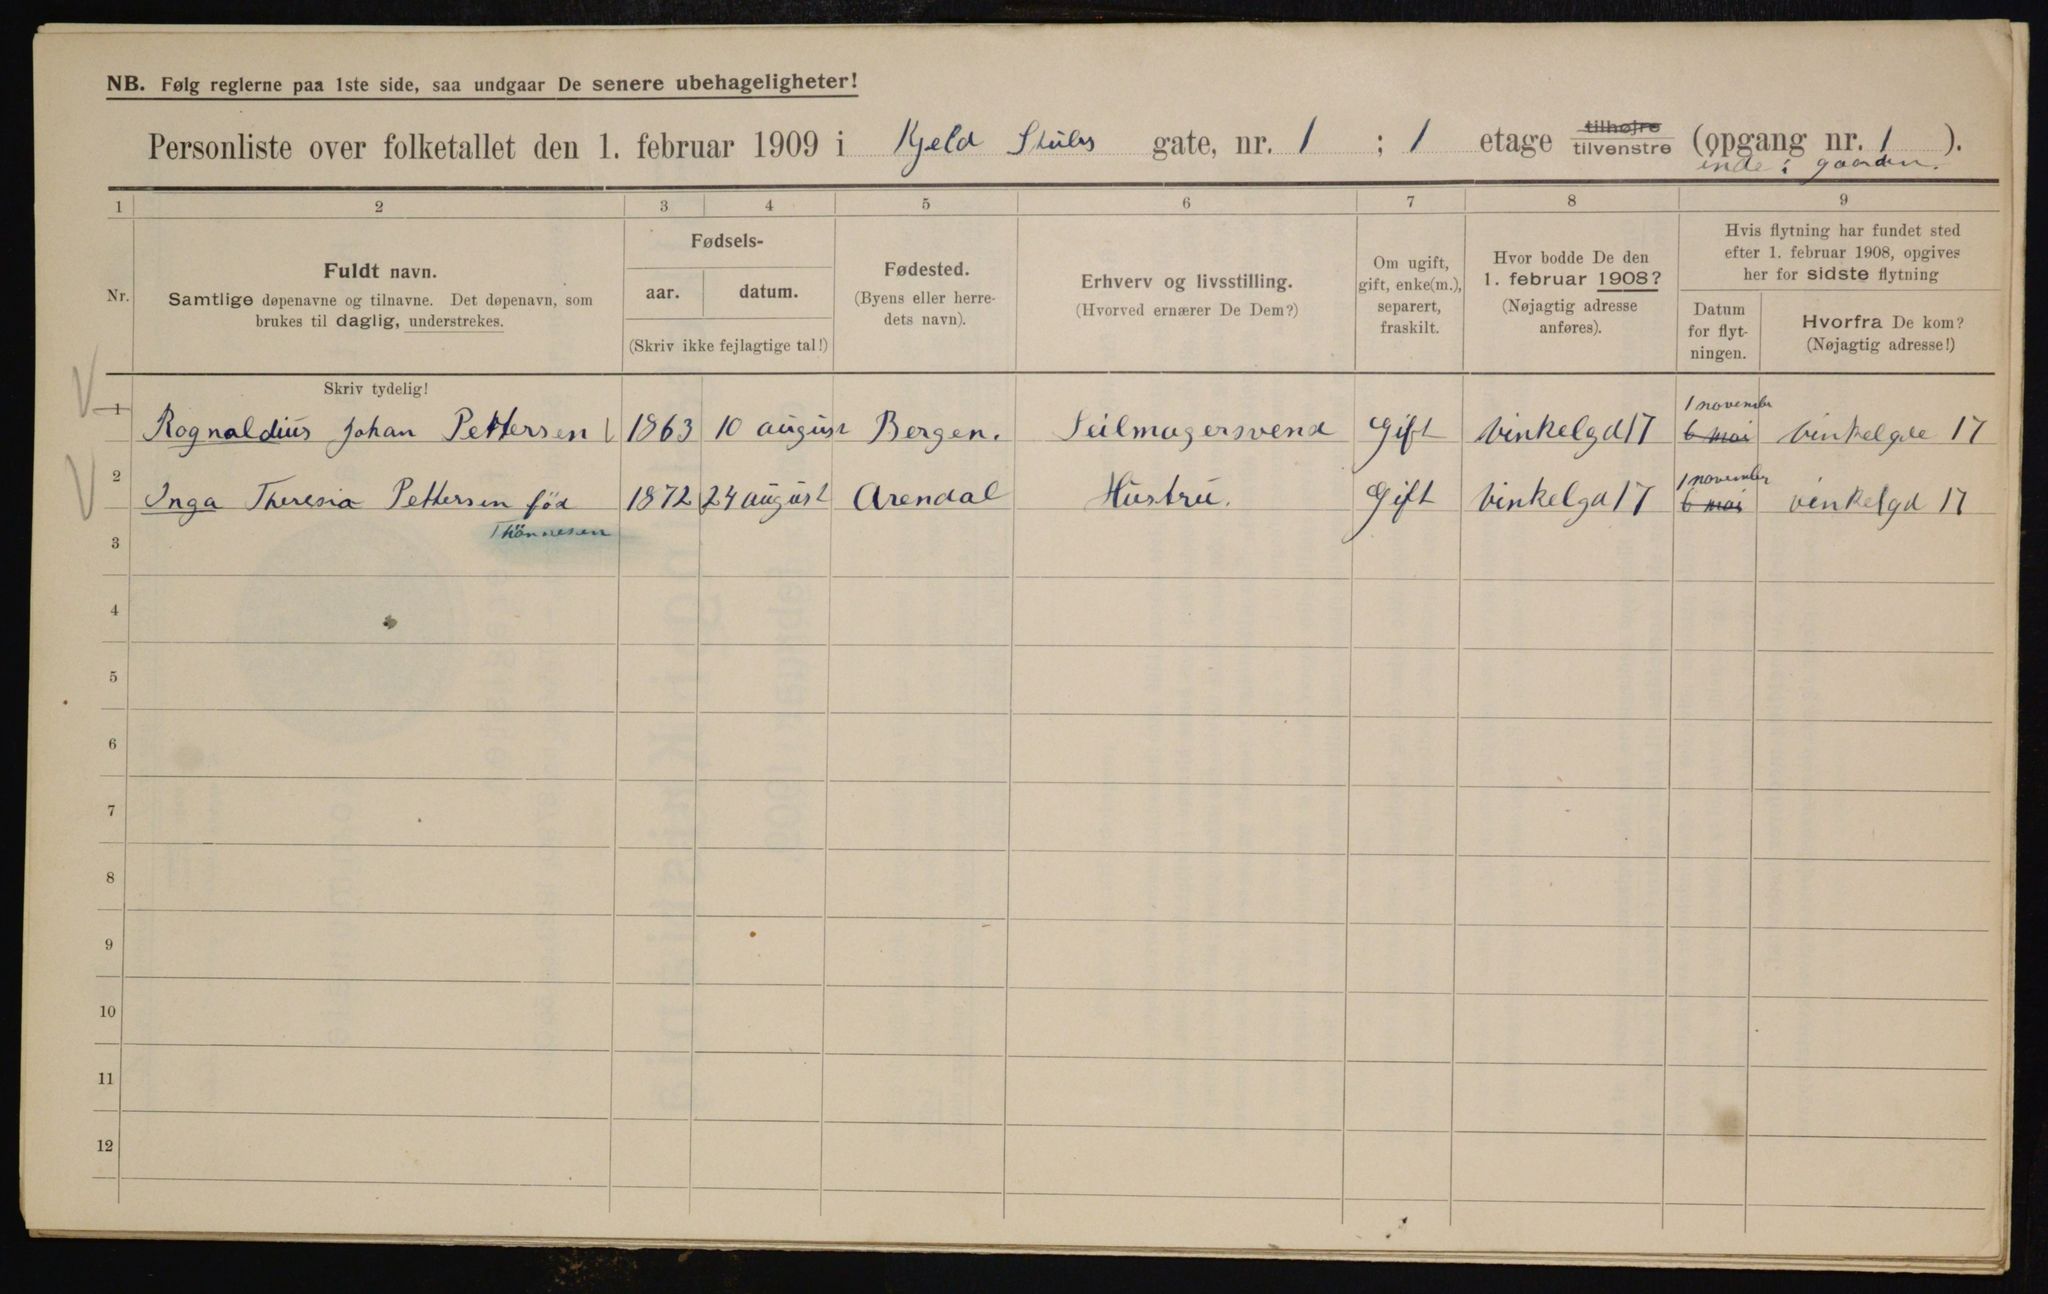 NB. Følg reglerne paa 1ste side, saa undgaar De senere ubehageligheter!
Personliste over folketallet den 1. februar 1909 i Kjeld Stubs gate, nr. 1 ; 1 etage tilhøjre tilvenstre (opgang nr. 1 ).
inde i gaarden.
1 2 3 4 5 6 7 8 9
Nr.
Fuldt navn.
Samtlige døpenavne og tilnavne. Det døpenavn, som
brukes til daglig, understrekes.
Fødsels-
aar. datum.
(Skriv ikke fejlagtige tal!)
Fødested.
(Byens eller herre-
dets navn).
Erhverv og livsstilling.
(Hvorved ernærer De Dem?)
Om ugift,
gift, enke(m.),
separert,
fraskilt.
Hvor bodde De den
1. februar 1908?
(Nøjagtig adresse
anføres).
Hvis flytning har fundet sted
efter 1. februar 1908, opgives
her for sidste flytning
Datum
for flyt-
ningen.
Hvorfra De kom?
(Nøjagtig adresse!)
Skriv tydelig!
1 november
1 Rognaldius Johan Pettersen 1863 10 august Bergen. Seilmagersvend Gift Vinkelgd 17 6 mai Vinkelgde 17
1 november
2 Inga Theresia Pettersen fød 1872 24 august Arendal Hustru. Gift Vinkelgd 17 6 mai vinkelgd 17
Thönnesen
3
4
5
6
7
8
9
10
11
12